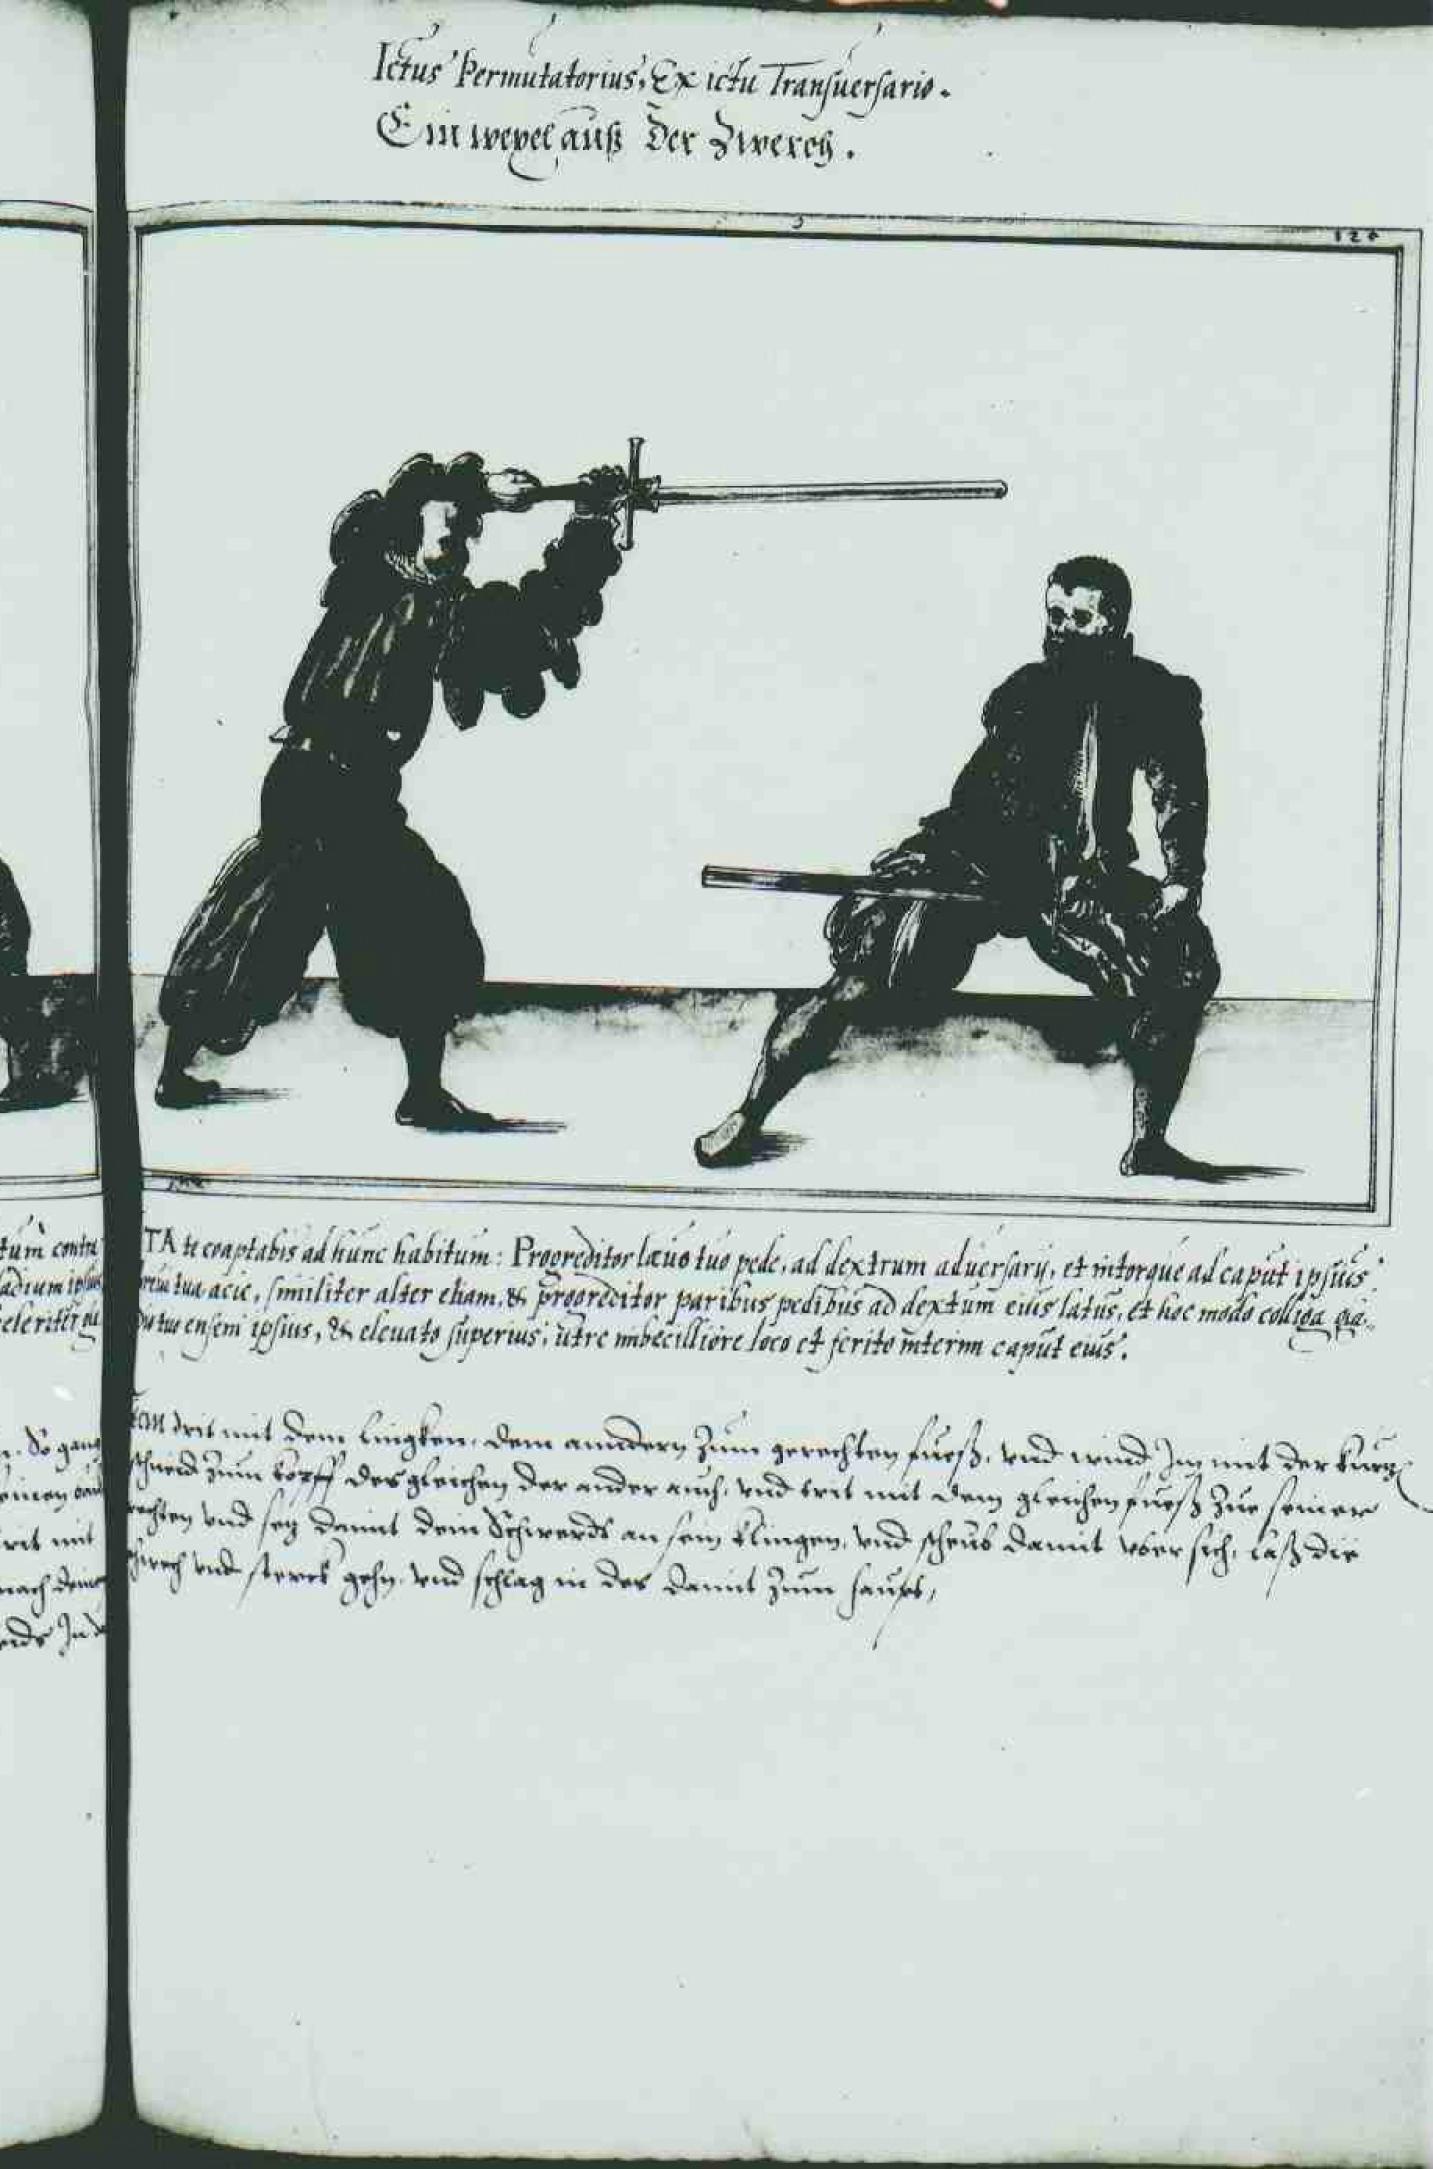 Ictus Permutatorius, Ex ictu Transuersario.
Ein wexel auß der Zwerch.
12
tum contra
ladium ipsius
celeriter
ITA te coaptabis ad hunc habitum: Progreditor læuo tuo pede, ad dextrum aduersarij, et intorque ad caput ipsius
breui tua acie, similiter alter etiam, & progreditor paribus pedibus ad dextum eius latus, et hoc modo colliga gla-
dio tuo ensem ipsius, & eleuato superius, utre imbecilliore loco et ferito interim caput eius.
So gang
rit mit
nach dem
Item drit mit dem lingken, dem anndern zum gerechten fueß, vnd wind Im mit der kurtz
schneid zum kopff desgleichen der ander auch, vnd trit mit dem gleichen fueß zue seiner
rechten vnd setz damit dein Schwerdt an sein klingen, vnd scheub damit vber sich, laß die
schwech vnd sterck gehn, vnd schlag in des damit zum haupt,